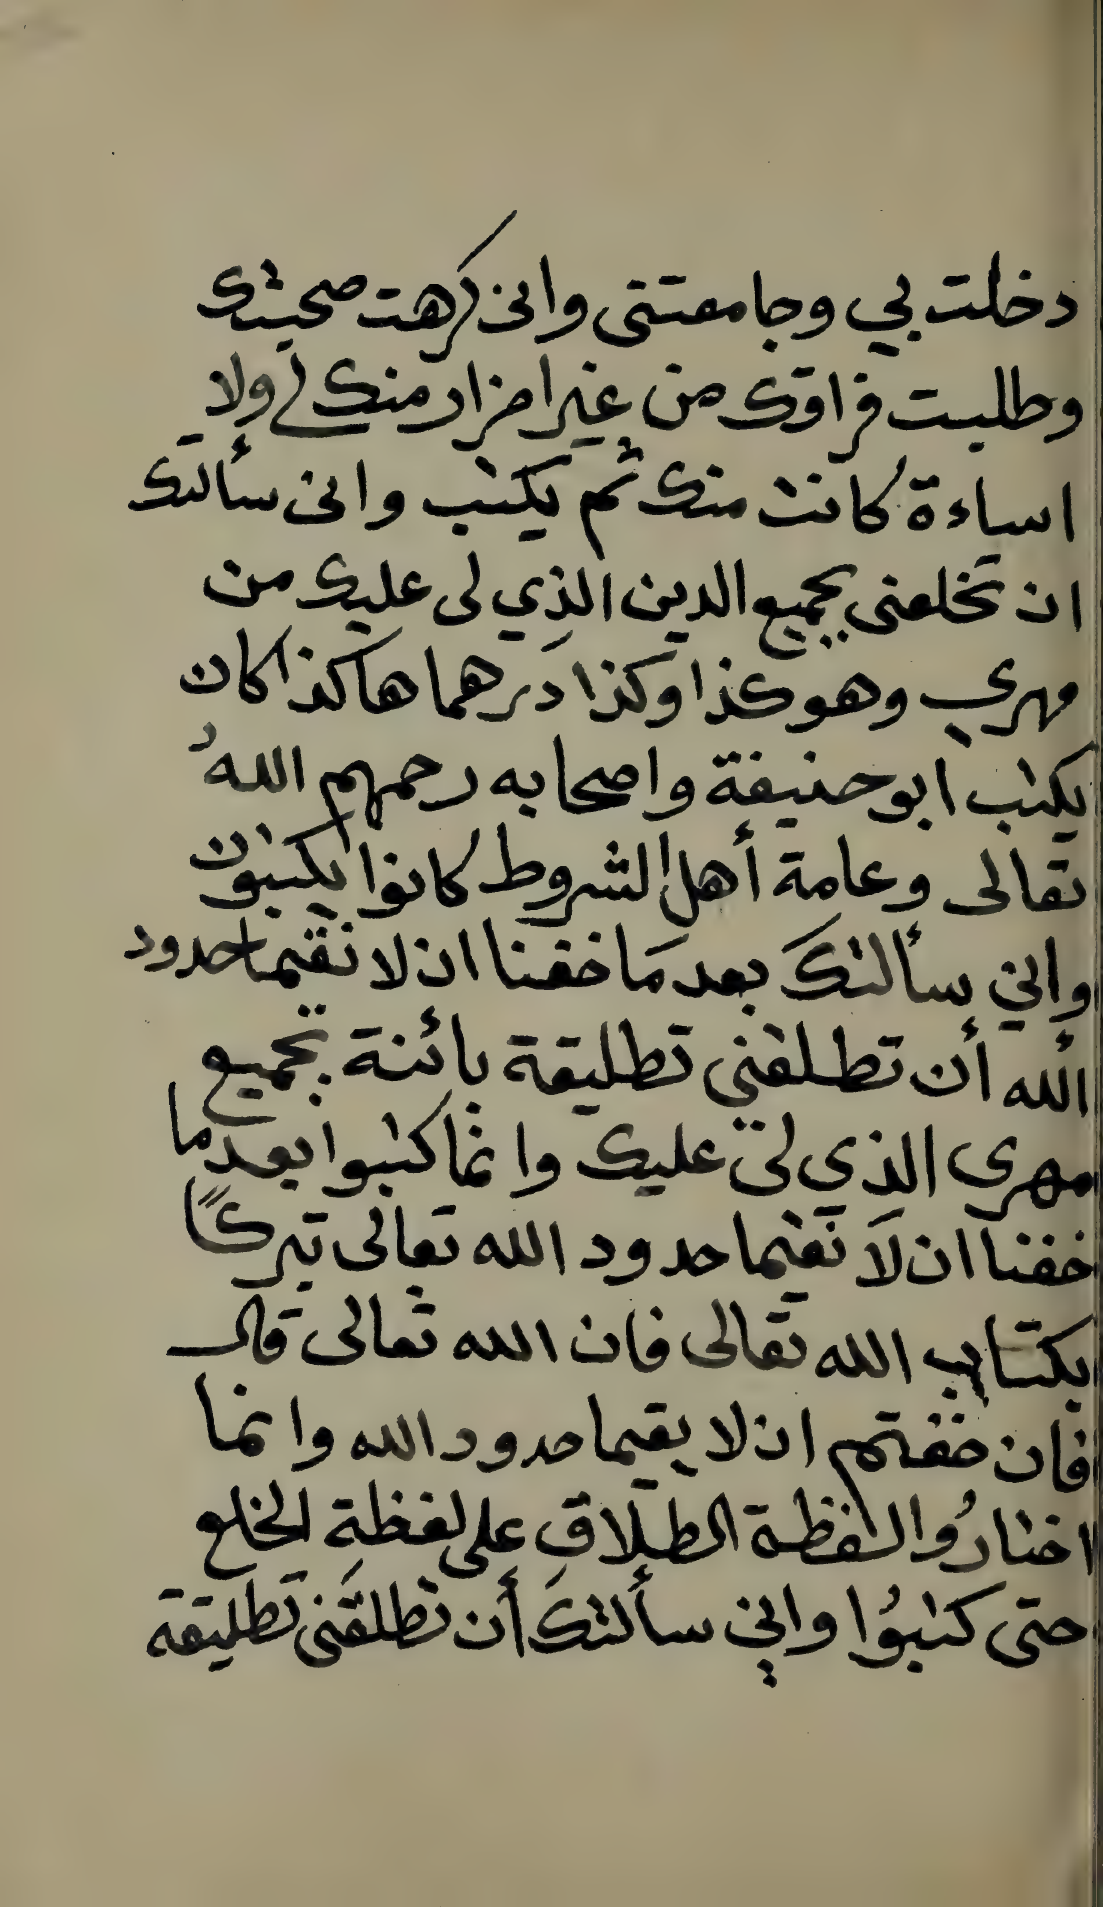 دخلت بي وجامعتنى وانى كرهت صحبتك
وطلبت فراقك من غير اضرار منك لي ولا
اساءة كانت منك ثم يكتب وانى سألتك
ان تخلعنى بجميع الدين الذي لى عليك من
مهري وهو كذا وكذا درهما هاكذا كان
يكتب ابو حنيفة واصحابه رحمهم اللهُ
تعالى وعامة أهل الشروط كانوا يكتبون
واني سألتك بعد مَا خفنا ان لا نقيما حدود
الله أن تطلقنى تطليقة بائنة بجميع
مهرى الذي لى عليك وانما كتبوا بعد ما
خفنا ان لَا نقيما حدود الله تعالى تبركًا
بكتاب الله تعالى فان الله تعالى قال
فان خفتم ان لا يقيما حدود الله وانما
اختارُوا لفظة الطلاقِ على لفظةِ الخلع
حتى كتبُوا واني سألتكَ أن تطلقَنى تطليقة